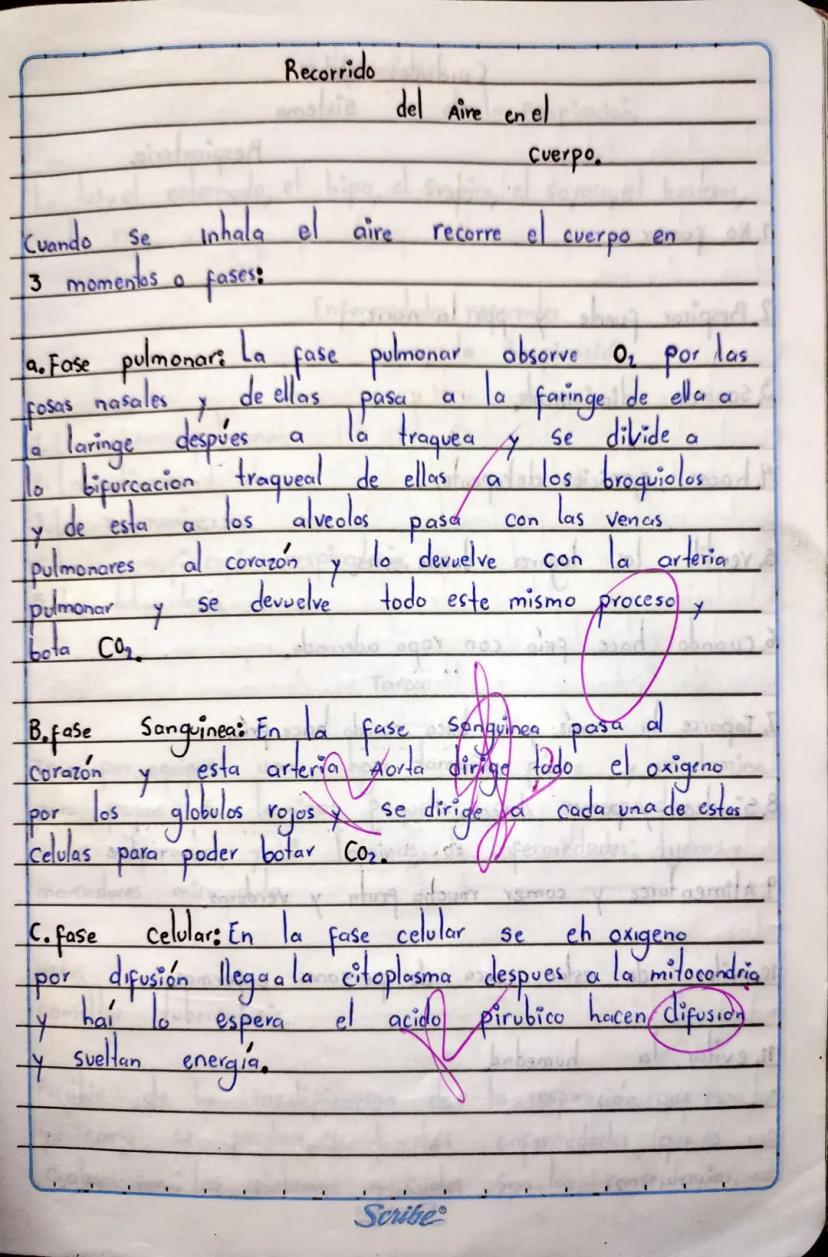 Recorrido
del Aire en el
cuerpo.
Cuando se inhala el aire recorre el cuerpo en
3 momentos o fases:
a. Fase pulmonar: La fase pulmonar absorve O₂ por las
fosas nasales y de ellas pasa a la faringe de ella a
la laringe despúes a la traquea y se divide a
lo bifurcacion traqueal de ellas a los broquiolos
y de esta a los alveolos pasa con las venas
pulmonares al corazón y lo devuelve con la arteria
pulmonar y se devuelve todo este mismo proceso y
bota CO₂.
B. fase Sanguinea: En la fase sanguinea pasa al
corazón y esta arteria Aorta dirige todo el oxigeno
por los globulos rojos y se dirige a cada una de estas
celulas para poder botar CO₂.
C. fase celular: En la fase celular se eh oxigeno
por difusión llega a la citoplasma despues a la mitocondria
y haí lo espera el acido pirubico hacen difusion
y sueltan energía.
Scribe®